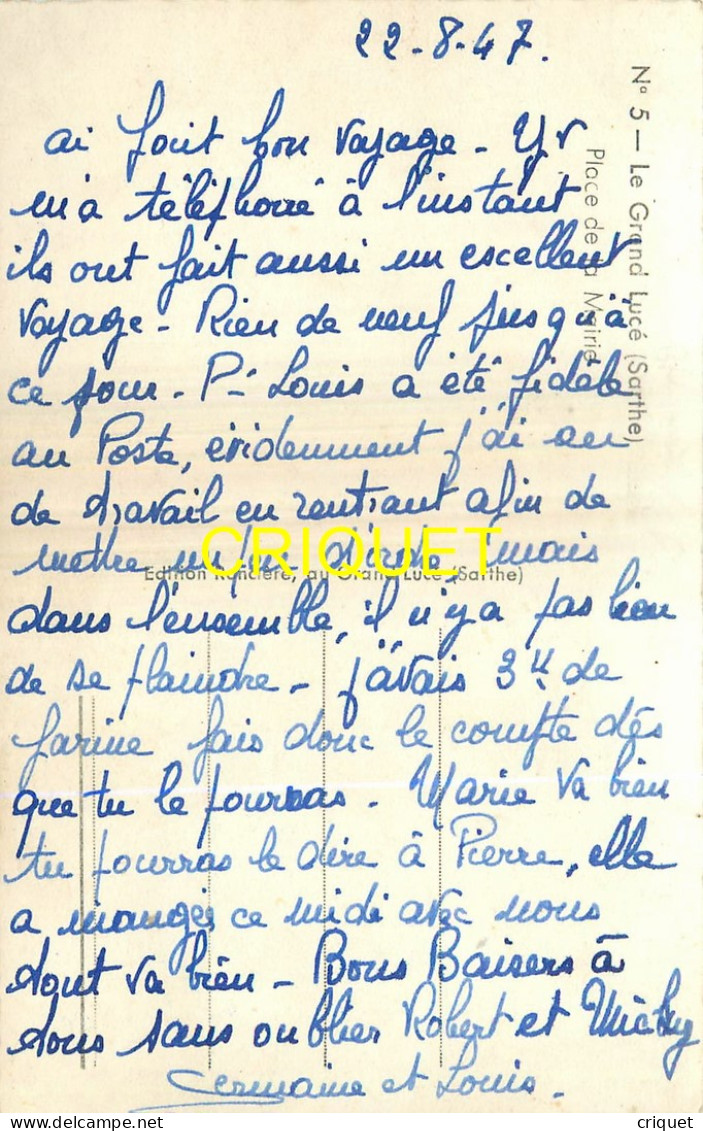 22-8-47.
ai fait bon voyage - Yv
m'a téléphoné à l'instant
ils ont fait aussi un excellent
voyage - Rien de neuf jusqu'à
ce jour - P- Louis a été fidèle
au Poste, évidemment j'ai au
de travail en rentrant afin de
mettre un d'ordre, mais
dans l'ensemble, il n'y a pas lieu
de se plaindre - j'avais 3 de
farine fais donc le compte dès
que tu le pourras. Marie va bien
tu pourras le dire à Pierre, elle
a manger ce midi avec nous
tout va bien - Bons Baisers à
tous sans oublier Robert et Micky
Germaine et Louis.
N° 5 — Le Grand Lucé (Sarthe)
Place de la Mairie
Edition Roncière, au Grand-Lucé (Sarthe)
CRIQUET
criquet